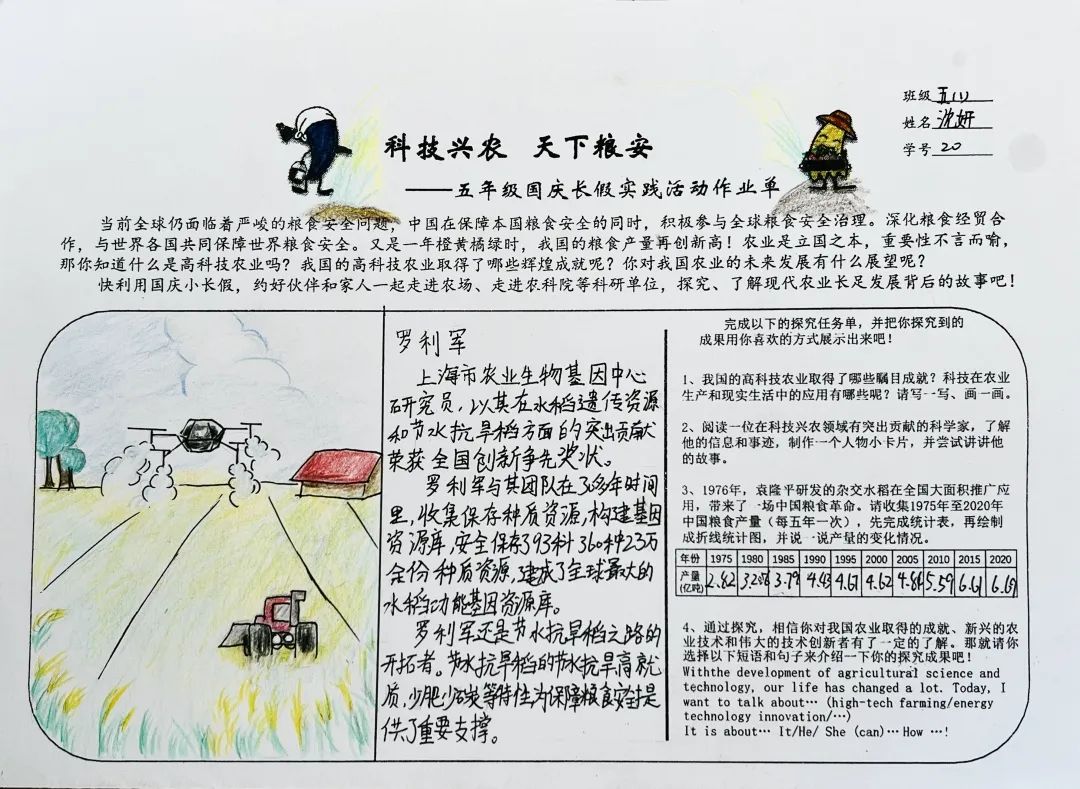 班级 五(1)
姓名 沈妍
学号 20
科技兴农 天下粮安
——五年级国庆长假实践活动作业单
当前全球仍面临着严峻的粮食安全问题，中国在保障本国粮食安全的同时，积极参与全球粮食安全治理。深化粮食经贸合
作，与世界各国共同保障世界粮食安全。又是一年橙黄橘绿时，我国的粮食产量再创新高！农业是立国之本，重要性不言而喻，
那你知道什么是高科技农业吗？我国的高科技农业取得了哪些辉煌成就呢？你对我国农业的未来发展有什么展望呢？
快利用国庆小长假，约好伙伴和家人一起走进农场、走进农科院等科研单位，探究、了解现代农业长足发展背后的故事吧！
罗利军
上海市农业生物基因中心
研究员，以其在水稻遗传资源
和节水抗旱稻方面的突出贡献
荣获全国创新争先奖状。
罗利军与其团队在30多年时间
里，收集保存种质资源，构建基因
资源库，安全保存了93科360种23万
余份种质资源，建成了全球最大的
水稻功能基因资源库。
罗利军还是节水抗旱稻之路的
开拓者。节水抗旱稻的节水抗旱高优
质，少肥少碳等特性为保障粮食安全提
供了重要支撑。
完成以下的探究任务单，并把你探究到的
成果用你喜欢的方式展示出来吧！
1、我国的高科技农业取得了哪些瞩目成就？科技在农业
生产和现实生活中的应用有哪些呢？请写一写、画一画。
2、阅读一位在科技兴农领域有突出贡献的科学家，了解
他的信息和事迹，制作一个人物小卡片，并尝试讲讲他
的故事。
3、1976年，袁隆平研发的杂交水稻在全国大面积推广应
用，带来了一场中国粮食革命。请收集1975年至2020年
中国粮食产量（每五年一次），先完成统计表，再绘制
成折线统计图，并说一说产量的变化情况。
年份 1975 1980 1985 1990 1995 2000 2005 2010 2015 2020
产量 2.82 3.206 3.79 4.43 4.67 4.62 4.84 5.59 6.61 6.69
(亿吨)
4、通过探究，相信你对我国农业取得的成就、新兴的农
业技术和伟大的技术创新者有了一定的了解。那就请你
选择以下短语和句子来介绍一下你的探究成果吧！
Withthe development of agricultural science and
technology, our life has changed a lot. Today, I
want to talk about… (high-tech farming/energy
technology innovation/…)
It is about… It/He/ She (can)…How …!